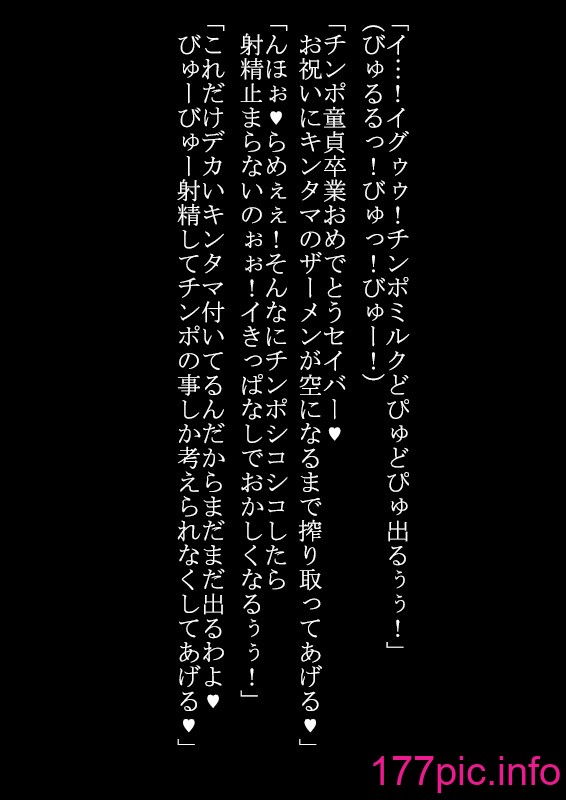 「イ…！イグゥゥ！チンポミルクどぴゅどぴゅ出るぅぅ！」
（びゅるるっ！びゅっ！びゅー！）
「チンポ童貞卒業おめでとうセイバー♥
お祝いにキンタマのザーメンが空になるまで搾り取ってあげる♥」
「んほぉ♥らめぇぇ！そんなにチンポシコシコしたら
射精止まらないのぉぉ！イきっぱなしでおかしくなるぅぅ！」
「これだけデカいキンタマ付いてるんだからまだまだ出るわよ♥
びゅーびゅー射精してチンポの事しか考えられなくしてあげる♥」
177pic.info